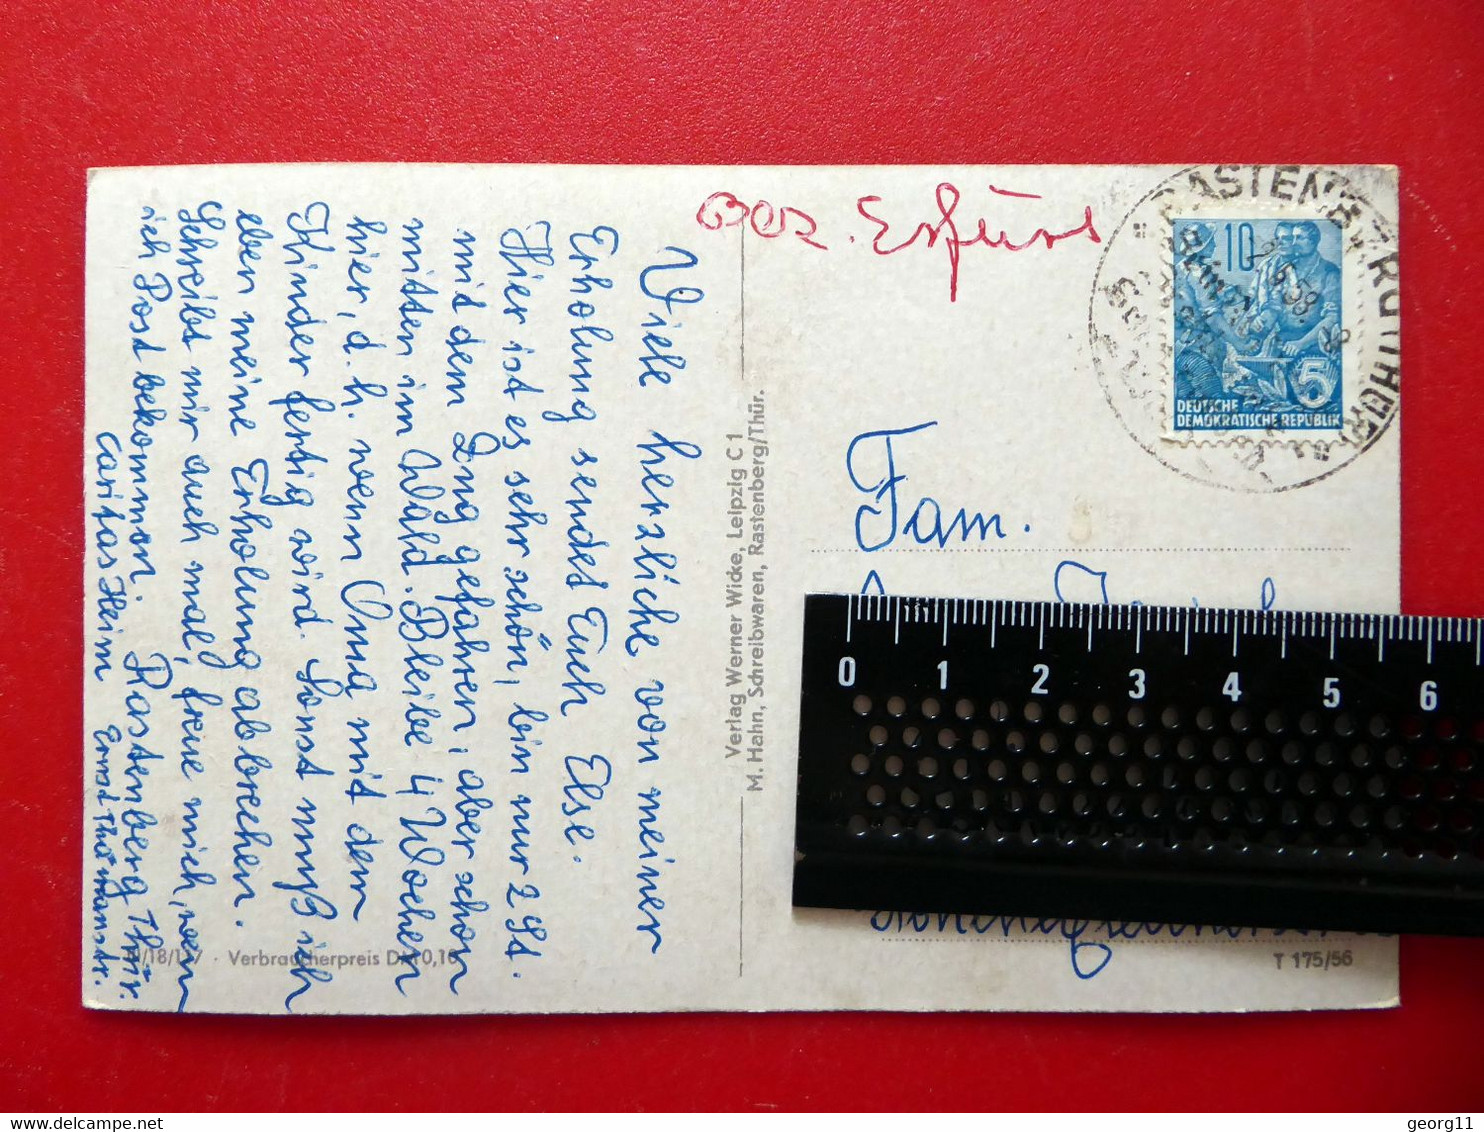 Viele herzliche von meiner
Erholung sendet Euch Else.
Hier ist es sehr schön, bin nur 2 St.
mit dem Zug gefahren, aber schon
mitten im Wald. Bleibe 4 Wochen
hier, d. h. wenn Oma mit dem
Kinder fertig wird. Sonst muß ich
eben meine Erholung abbrechen.
Schreibt mir auch mal, freue mich, wenn
ich Post bekommen. Rastenberg Thür.
Caritas Heim Ernst Thälmannstr.
18/1 7 · Verbraucherpreis DM 0,15
Verlag Werner Wicke, Leipzig C 1
M. Hahn, Schreibwaren, Rastenberg/Thür.
Bez. Erfurt
RASTENBERG (THÜR)
58
10
5
DEUTSCHE
DEMOKRATISCHE REPUBLIK
Fam.
T 175/56
0 1 2 3 4 5 6
georg11